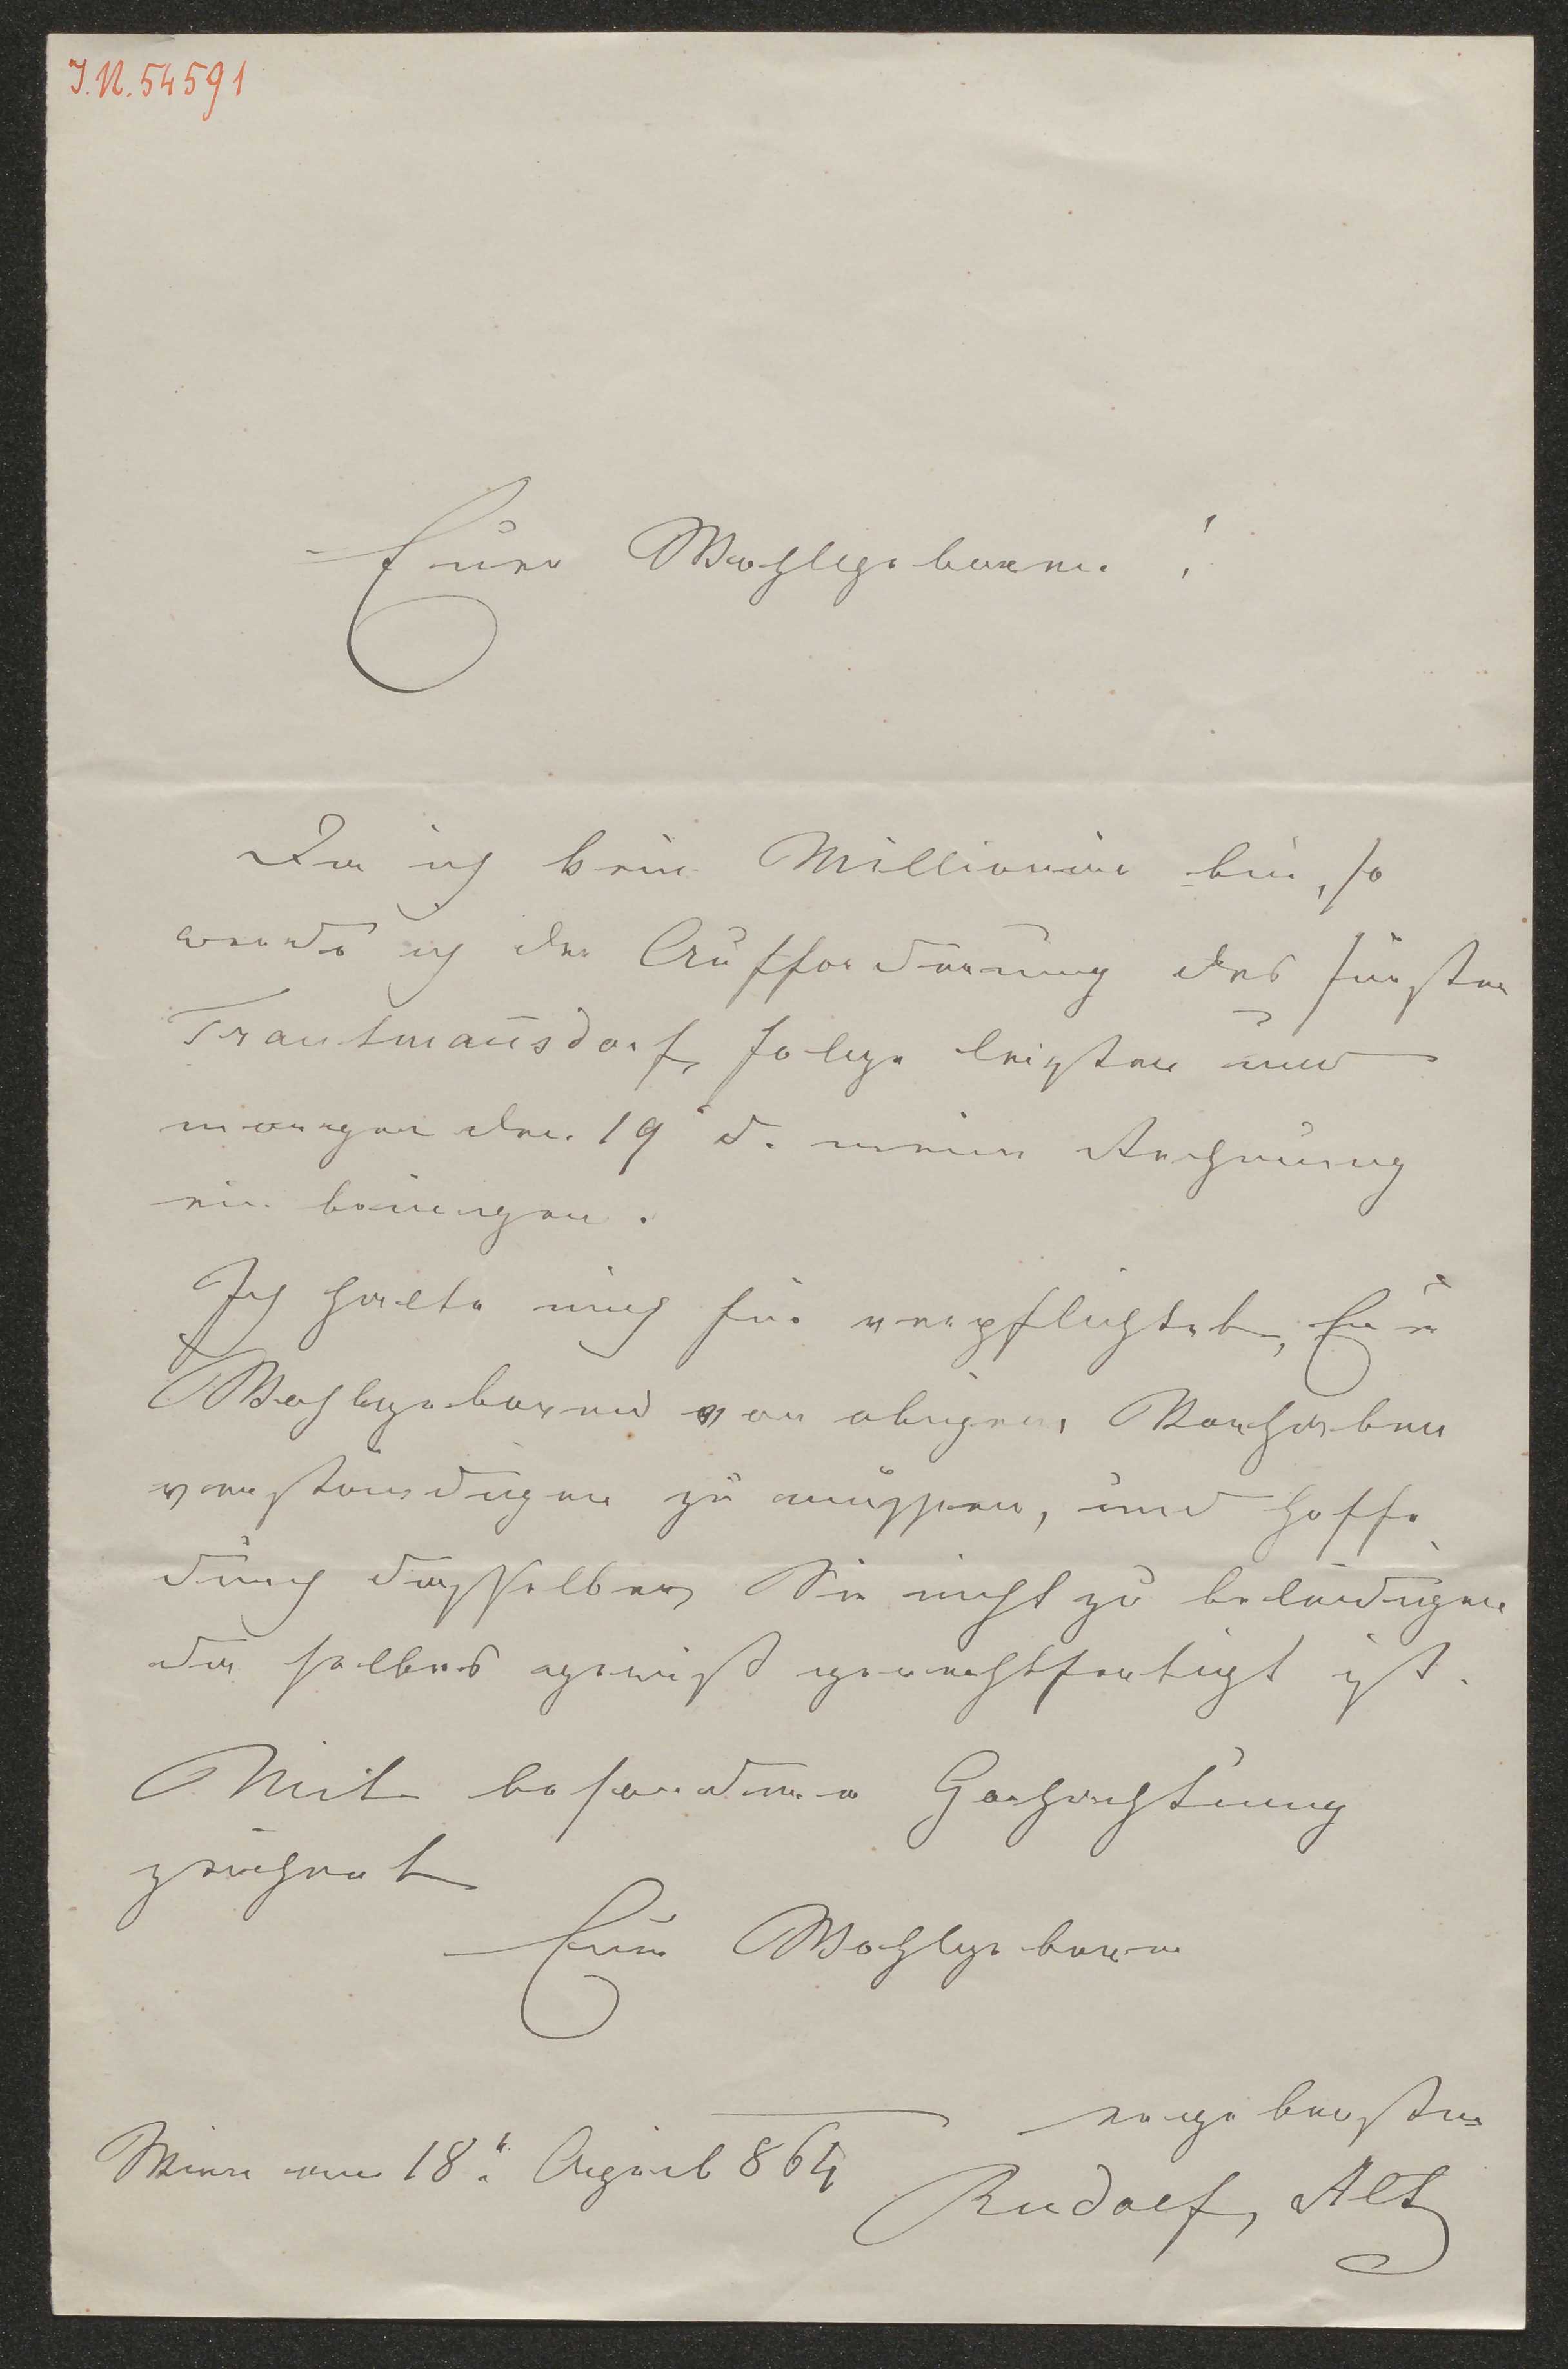 I.N. 54591
Euer Wohlgeboren !
Da ich kein Millionär bin, so
werde ich der Aufforderung des Fürsten
Trautmansdorf, Folge leisten und
morgen den 19 d. meine Rechnung
ein bringen.
Ich halte mich für verpflichtet, Euer
Wohlgeboren von obigem Vorhaben
verständigen zu müssen, und hoffe
durch dasselben, Sie nicht zu beleidigen
da selbes gewiß gerechtfertigt ist.
Mit besonderer Hochachtung
zeichnet
Euer Wohlgeboren
ergebenster
Wien am 18t. August 864
Rudolf Alt